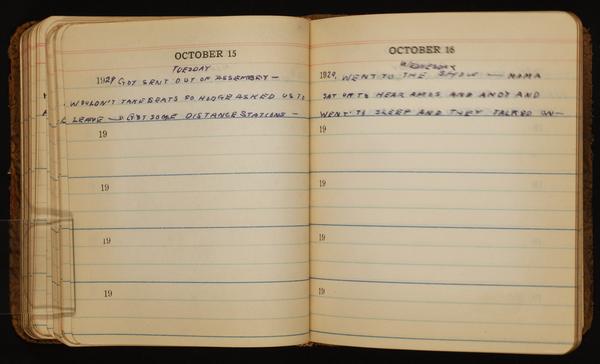 OCTOBER 15
TUESDAY
1929 GOT SENT OUT OF ASSEMBLY —
WOULDN'T TAKE SEATS SO HODGE ASKED US TO
LEAVE — GOT SOME DISTANCE STATIONS —
19
19
19
19
OCTOBER 16
WEDNESDAY
1929. WENT TO THE SHOW — MOMA
SAT UP TO HEAR AMOS AND ANDY AND
WENT TO SLEEP AND THEY TALKED ON—
19
19
19
19